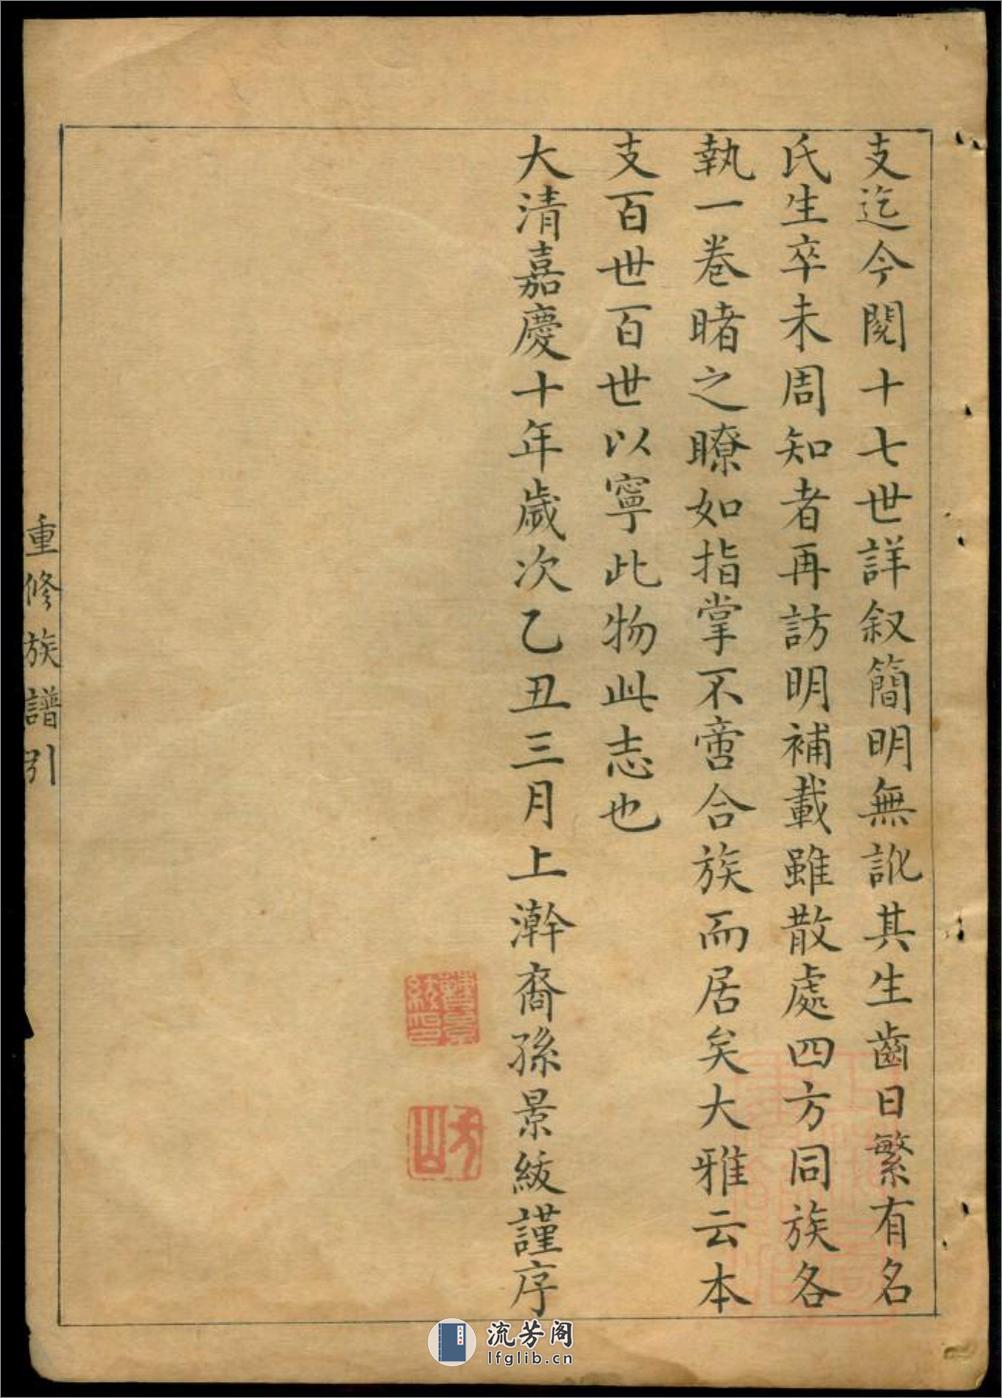 支迄今閱十七世詳叙簡明無訛其生齒日繁有名
氏生卒未周知者再訪明補載雖散處四方同族各
執一卷睹之瞭如指掌不啻合族而居矣大雅云本
支百世百世以寧此物此志也
大清嘉慶十年歲次乙丑三月上澣裔孫景紱謹序
重修族譜引
流芳阁
lfglib.cn